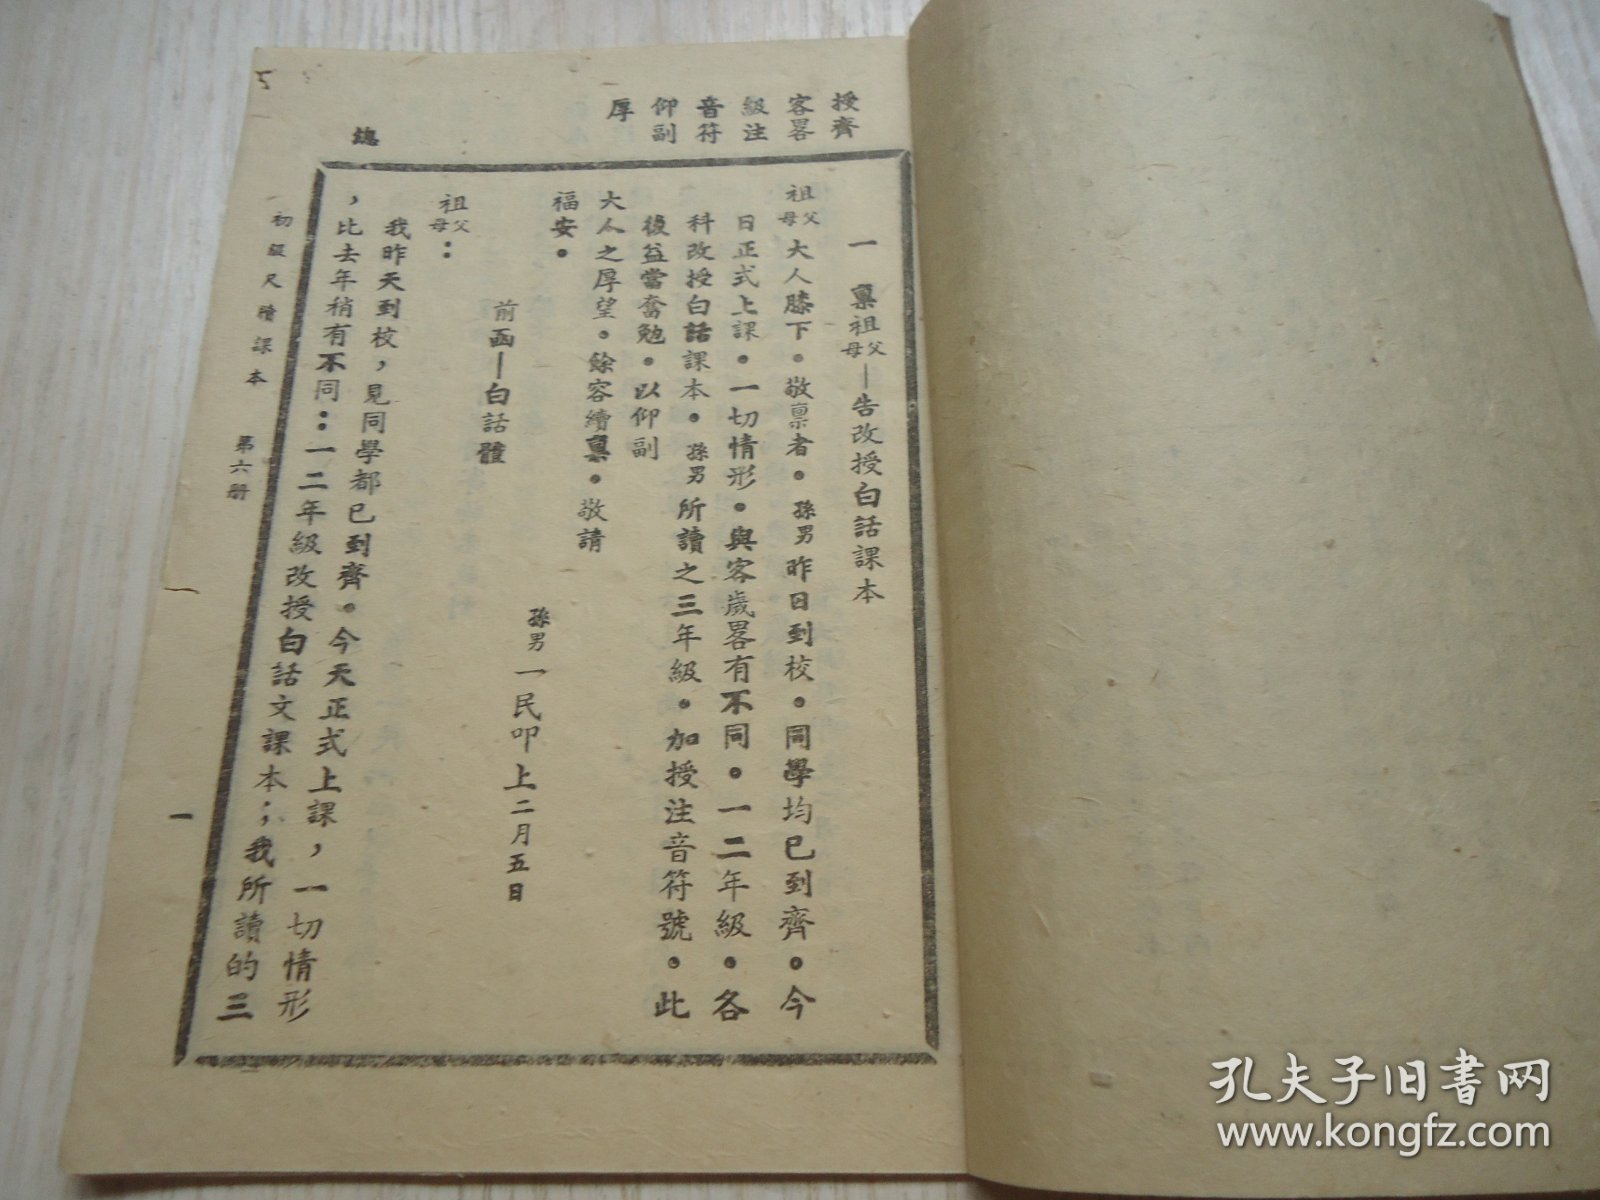 授齊
容畧
級注
音符
仰副
厚
總
一 稟祖父母—告改授白話課本
祖父母大人膝下。敬稟者。孫男昨日到校。同學均已到齊。今
日正式上課。一切情形。與客歲畧有不同。一二年級。各
科改授白話課本。孫男所讀之三年級。加授注音符號。此
後益當奮勉。以仰副
大人之厚望。餘容續稟。敬請
福安。
孫男一民叩上二月五日
前函—白話體
祖父母：
我昨天到校，見同學都已到齊。今天正式上課，一切情形
，比去年稍有不同：一二年級改授白話文課本；我所讀的三
初級尺牘課本 第六册 一
孔夫子旧书网
www.kongfz.com